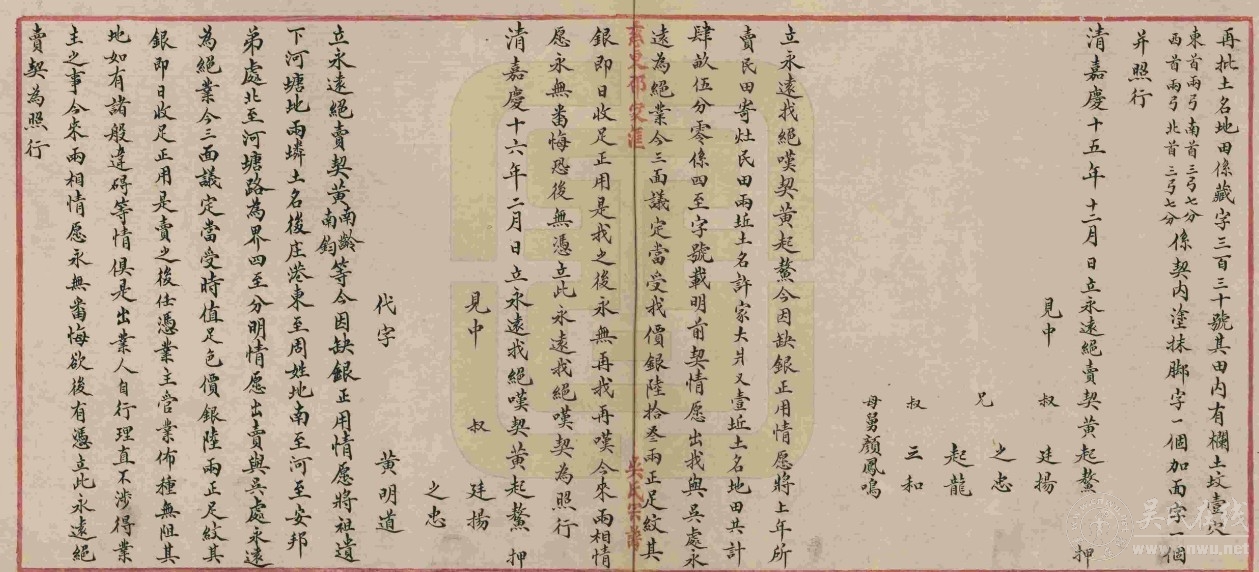 再批土名地田係藏字三百三十號其田内有欄土坟壹穴
東首兩弓南首三弓七分
西首兩弓北首三弓七分係契内塗抹脚字一個加面字一個
并照行
清嘉慶十五年十二月日立永遠絕賣契黄起鰲押
見中 叔 廷揚
之忠
兄 起龍
叔 三和
母舅顏鳳鳴
立永遠找絕嘆契黄起鰲今因缺銀正用情愿將上年所
賣民田寄灶民田兩坵土名許家大爿又壹坵土名地田共計
肆畝伍分零係四至字號載明前契情愿出找與吳處永
遠為絕業今三面議定當受找價銀陸拾叄兩正足紋其
吳氏宗譜
銀即日收足正用是找之後永無再找再嘆今來兩相情
愿永無畨悔恐後無憑立此永遠找絕嘆契為照行
清嘉慶十六年二月日立永遠找絕嘆契黄起鰲押
見中 叔 廷揚
之忠
代字 黄明道
立永遠絕賣契黄南齡
南鈞等今因缺銀正用情愿將祖遺
下河塘地兩墳土名後庄港東至周姓地南至河至安邦
弟處北至河塘路為界四至分明情愿出賣與吳處永遠
為絕業今三面議定當受時值足色價銀陸兩正足紋其
銀即日收足正用是賣之後任憑業主管業佈種無阻其
地如有諸般違碍等情俱是出業人自行理直不涉得業
主之事今來兩相情愿永無畨悔欲後有憑立此永遠絕
賣契為照行
吴氏在线
www.cnwu.net